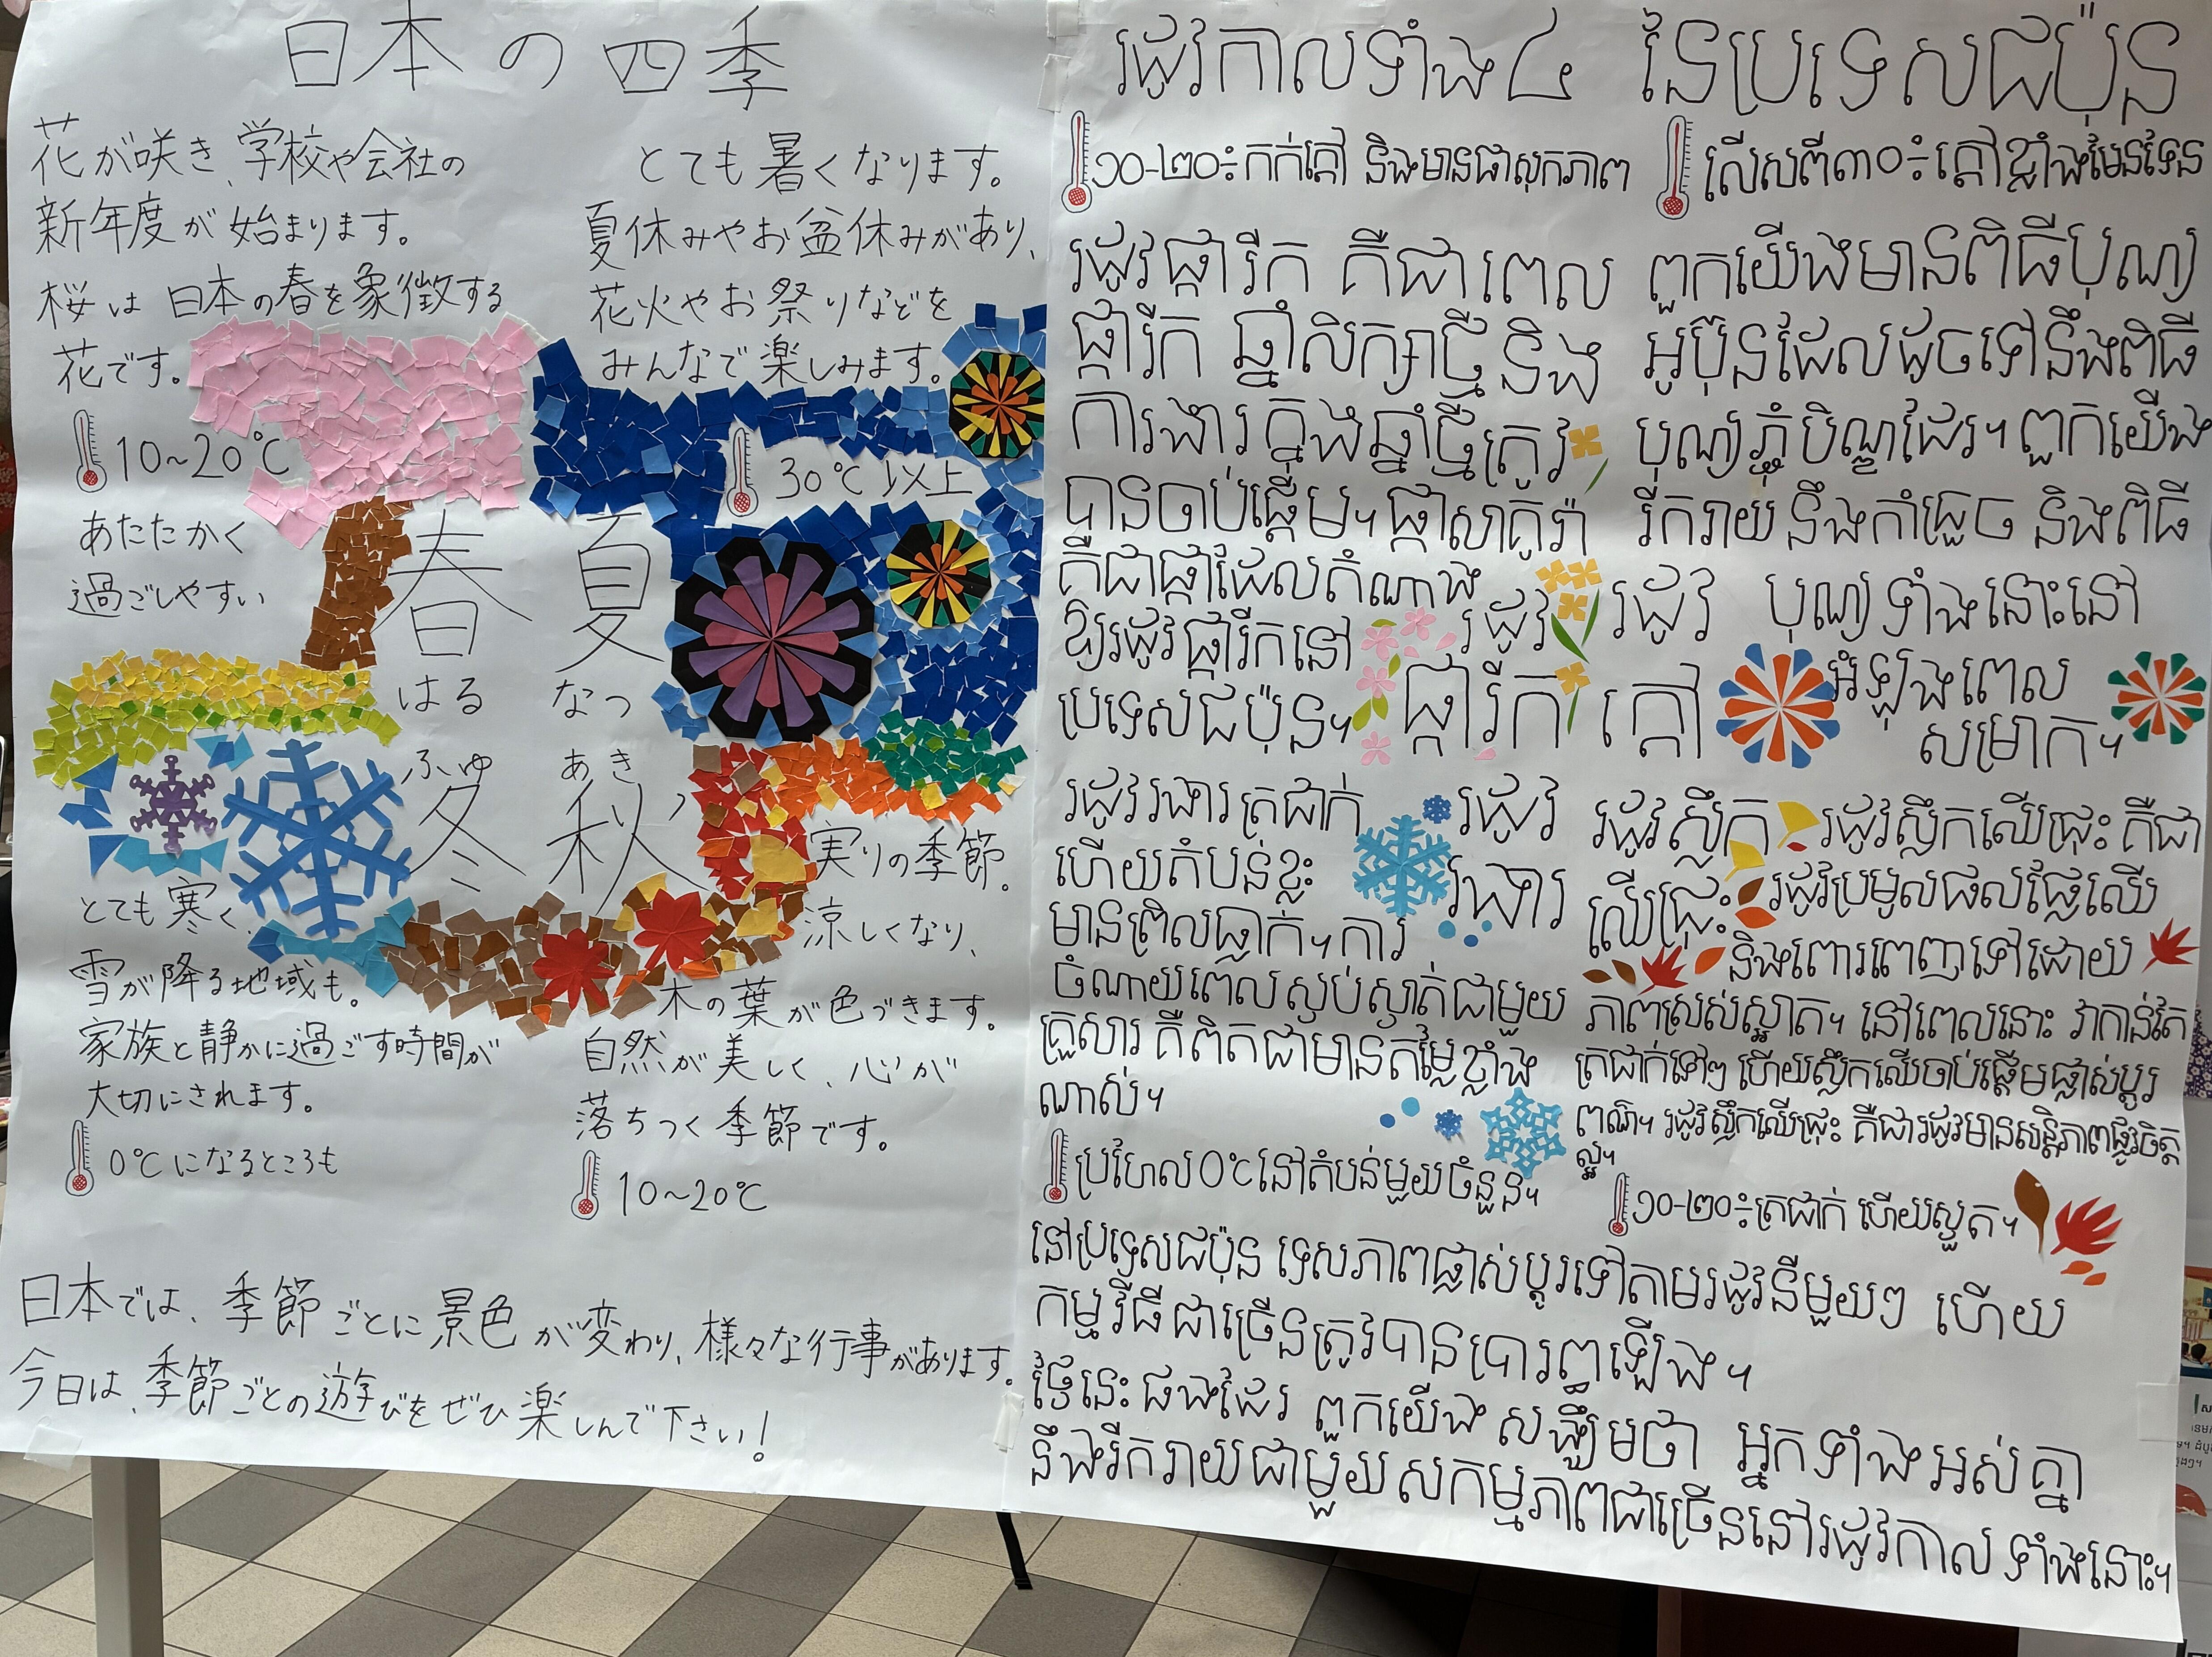 日本の四季
花が咲き、学校や会社の
新年度が始まります。
桜は日本の春を象徴する
花です。
10~20℃
あたたかく
過ごしやすい
春
はる
とても暑くなります。
夏休みやお盆休みがあり、
花火やお祭りなどを
みんなで楽しみます。
30℃以上
夏
なつ
ふゆ
冬
とても寒く、
雪が降る地域も。
家族と静かに過ごす時間が
大切にされます。
0℃になるところも
あき
秋
実りの季節。
涼しくなり、
木の葉が色づきます。
自然が美しく、心が
落ちつく季節です。
10~20℃
日本では、季節ごとに景色が変わり、様々な行事があります。
今日は、季節ごとの遊びをぜひ楽しんで下さい!
រដូវកាលទាំង៤ នៃប្រទេសជប៉ុន
១០-២០÷កក់ក្តៅ និងមានផាសុកភាព
រដូវផ្ការីក គឺជាពេល
ផ្ការីក ឆ្នាំសិក្សាថ្មីនិង
ការងារក្នុងឆ្នាំថ្មីត្រូវ
បានចាប់ផ្តើម។ផ្កាសាគូរ៉ា
គឺជាផ្កាដែលតំណាង
ឱ្យរដូវផ្ការីកនៅ
ប្រទេសជប៉ុន។
រដូវ
ផ្ការីក
លើសពី៣០÷ក្តៅខ្លាំងមែនទែន
ពួកយើងមានពិធីបុណ្យ
អូប៊ុនដែលដូចទៅនឹងពិធី
បុណ្យភ្ជុំបិណ្ឌដែរ។ពួកយើង
រីករាយនឹងកាំជ្រួច និងពិធី
បុណ្យទាំងនោះនៅ
អំឡុងពេល
សម្រាក។
រដូវ
ក្តៅ
រដូវរងារត្រជាក់
ហើយតំបន់ខ្លះ
មានព្រិលធ្លាក់។ការ
ចំណាយពេលស្ងប់ស្ងាត់ជាមួយ
គ្រួសារ គឺពិតជាមានតម្លៃខ្លាំង
ណាស់។
រដូវ
រងារ
ប្រហែល0℃នៅតំបន់មួយចំនួន។
រដូវស្លឹក
ឈើជ្រុះ
រដូវស្លឹកឈើជ្រុះ គឺជា
រដូវប្រមូលផលផ្លែឈើ
និងពោរពេញទៅដោយ
ភាពស្រស់ស្អាត។ នៅពេលនោះ វាកាន់តែ
ត្រជាក់ទៅៗ ហើយស្លឹកឈើចាប់ផ្តើមផ្លាស់ប្តូរ
ពណ៌។ រដូវស្លឹកឈើជ្រុះ គឺជារដូវមានសន្តិភាពផ្លូវចិត្ត
ល្អ។
១០-២០÷ត្រជាក់ ហើយស្ងួត។
នៅប្រទេសជប៉ុន ទេសភាពផ្លាស់ប្តូរទៅតាមរដូវនីមួយៗ ហើយ
កម្មវិធីជាច្រើនត្រូវបានប្រារព្ធឡើង។
ថ្ងៃនេះផងដែរ ពួកយើងសង្ឃឹមថា អ្នកទាំងអស់គ្នា
នឹងរីករាយជាមួយសកម្មភាពជាច្រើននៅរដូវកាលទាំងនោះ។